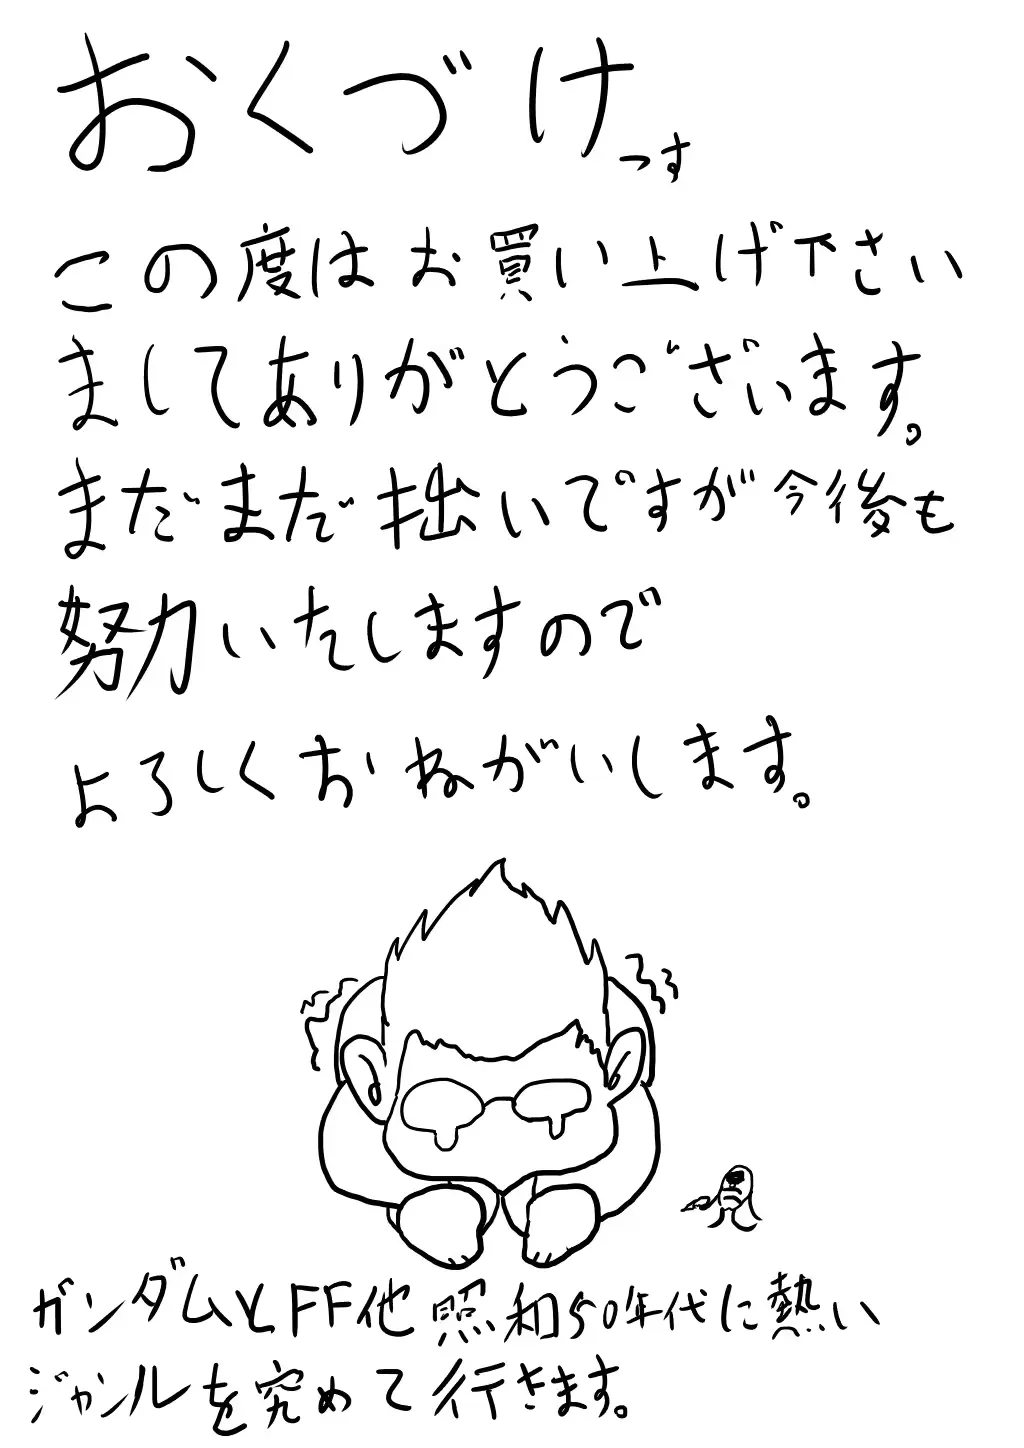 おくづけっす
この度はお買い上げ下さい
ましてありがとうございます。
まだまだ拙いですが今後も
努力いたしますので
よろしくおねがいします。
ガンダムとFF他昭和50年代に熱い
ジャンルを究めて行きます。